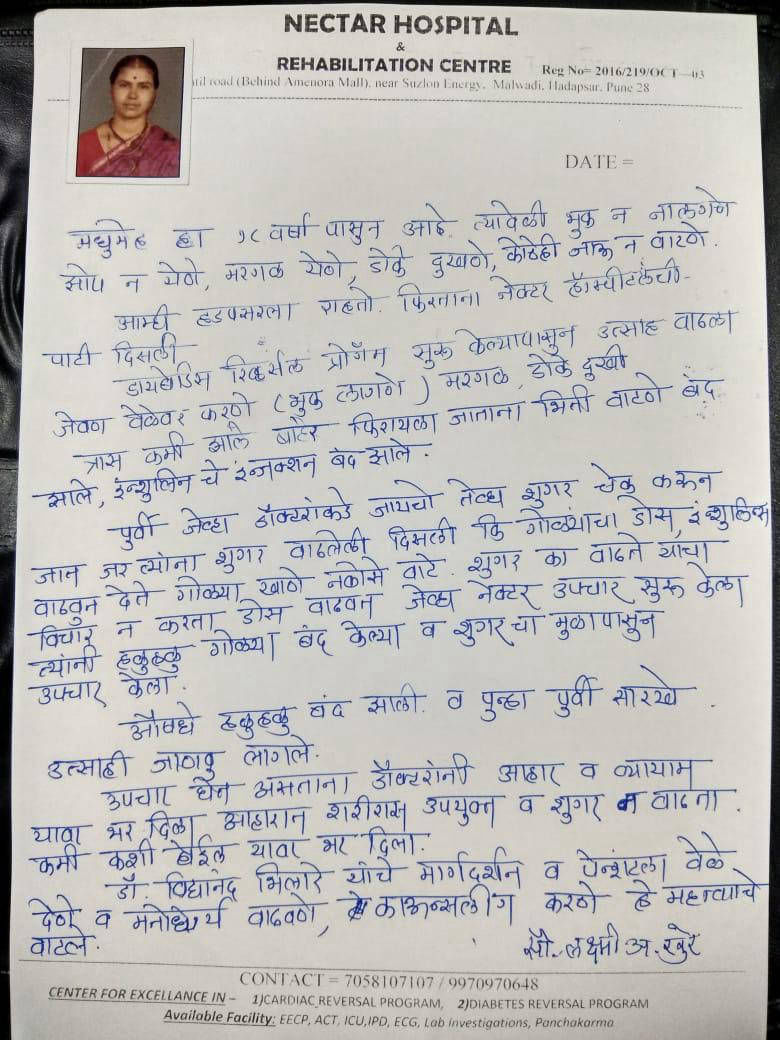 NECTAR HOSPITAL
&
REHABILITATION CENTRE
Reg No= 2016/219/OCT-03
til road (Behind Amenora Mall), near Suzlon Energy, Malwadi, Hadapsar, Pune 28
DATE =
मधुमेह हा १८ वर्षा पासुन आहे. त्यावेळी भुक न लागणे
झोप न येणे, मरगळ येणे, डोके दुखणे, कोठेही जाऊ न वाटणे.
आम्ही हडपसरला राहतो. फिरताना नेक्टर हॉस्पीटलची
पाटी दिसली
डायबेडिस रिव्हर्सल प्रोग्रॅम सुरू केल्यापासुन उत्साह वाढला
जेवण वेळेवर करणे (भुक लागणे) मरगळ, डोके दुखी
त्रास कमी झाले बाहेर फिरायला जाताना भिती वाटणे बंद
झाले, इन्शुलिन चे इन्जक्शन बंद झाले.
पुर्वी जेव्हा डॉक्टरांकडे जायचो तेव्हा शुगर चेक करून
जान जर त्यांना शुगर वाढलेली दिसली कि गोळ्यांचा डोस, इन्शुलिन्स
वाढवुन देते गोळ्या खाणे नकोसे वाटे. शुगर का वाढते याचा
विचार न करता डोस वाढवत जेव्हा नेक्टर उपचार सुरू केला
त्यांनी हळुहळु गोळ्या बंद केल्या व शुगरचा मुळापासुन
उपचार केला.
औषधे हळुहळु बंद झाली. व पुन्हा पुर्वी सारखे.
उत्साही जाणवु लागले.
उपचार घेत असताना डॉक्टरांनी आहार व व्यायाम
यावर भर दिला आहारात शरीरास उपयुक्त व शुगर न वाढता.
कमी कशी होईल यावर भर दिला.
डॉ. विद्यानंद भिलारे यांचे मार्गदर्शन व पेन्शंटला वेळे
देणे व मनोधैर्य वाढवणे, काऊन्सलींग करणे हे महत्वाचे
वाटले.
सौ. लक्ष्मी अ. खुरे
CONTACT = 7058107107 / 9970970648
CENTER FOR EXCELLENCE IN – 1)CARDIAC REVERSAL PROGRAM, 2)DIABETES REVERSAL PROGRAM
Available Facility: EECP, ACT, ICU,IPD, ECG, Lab Investigations, Panchakarma